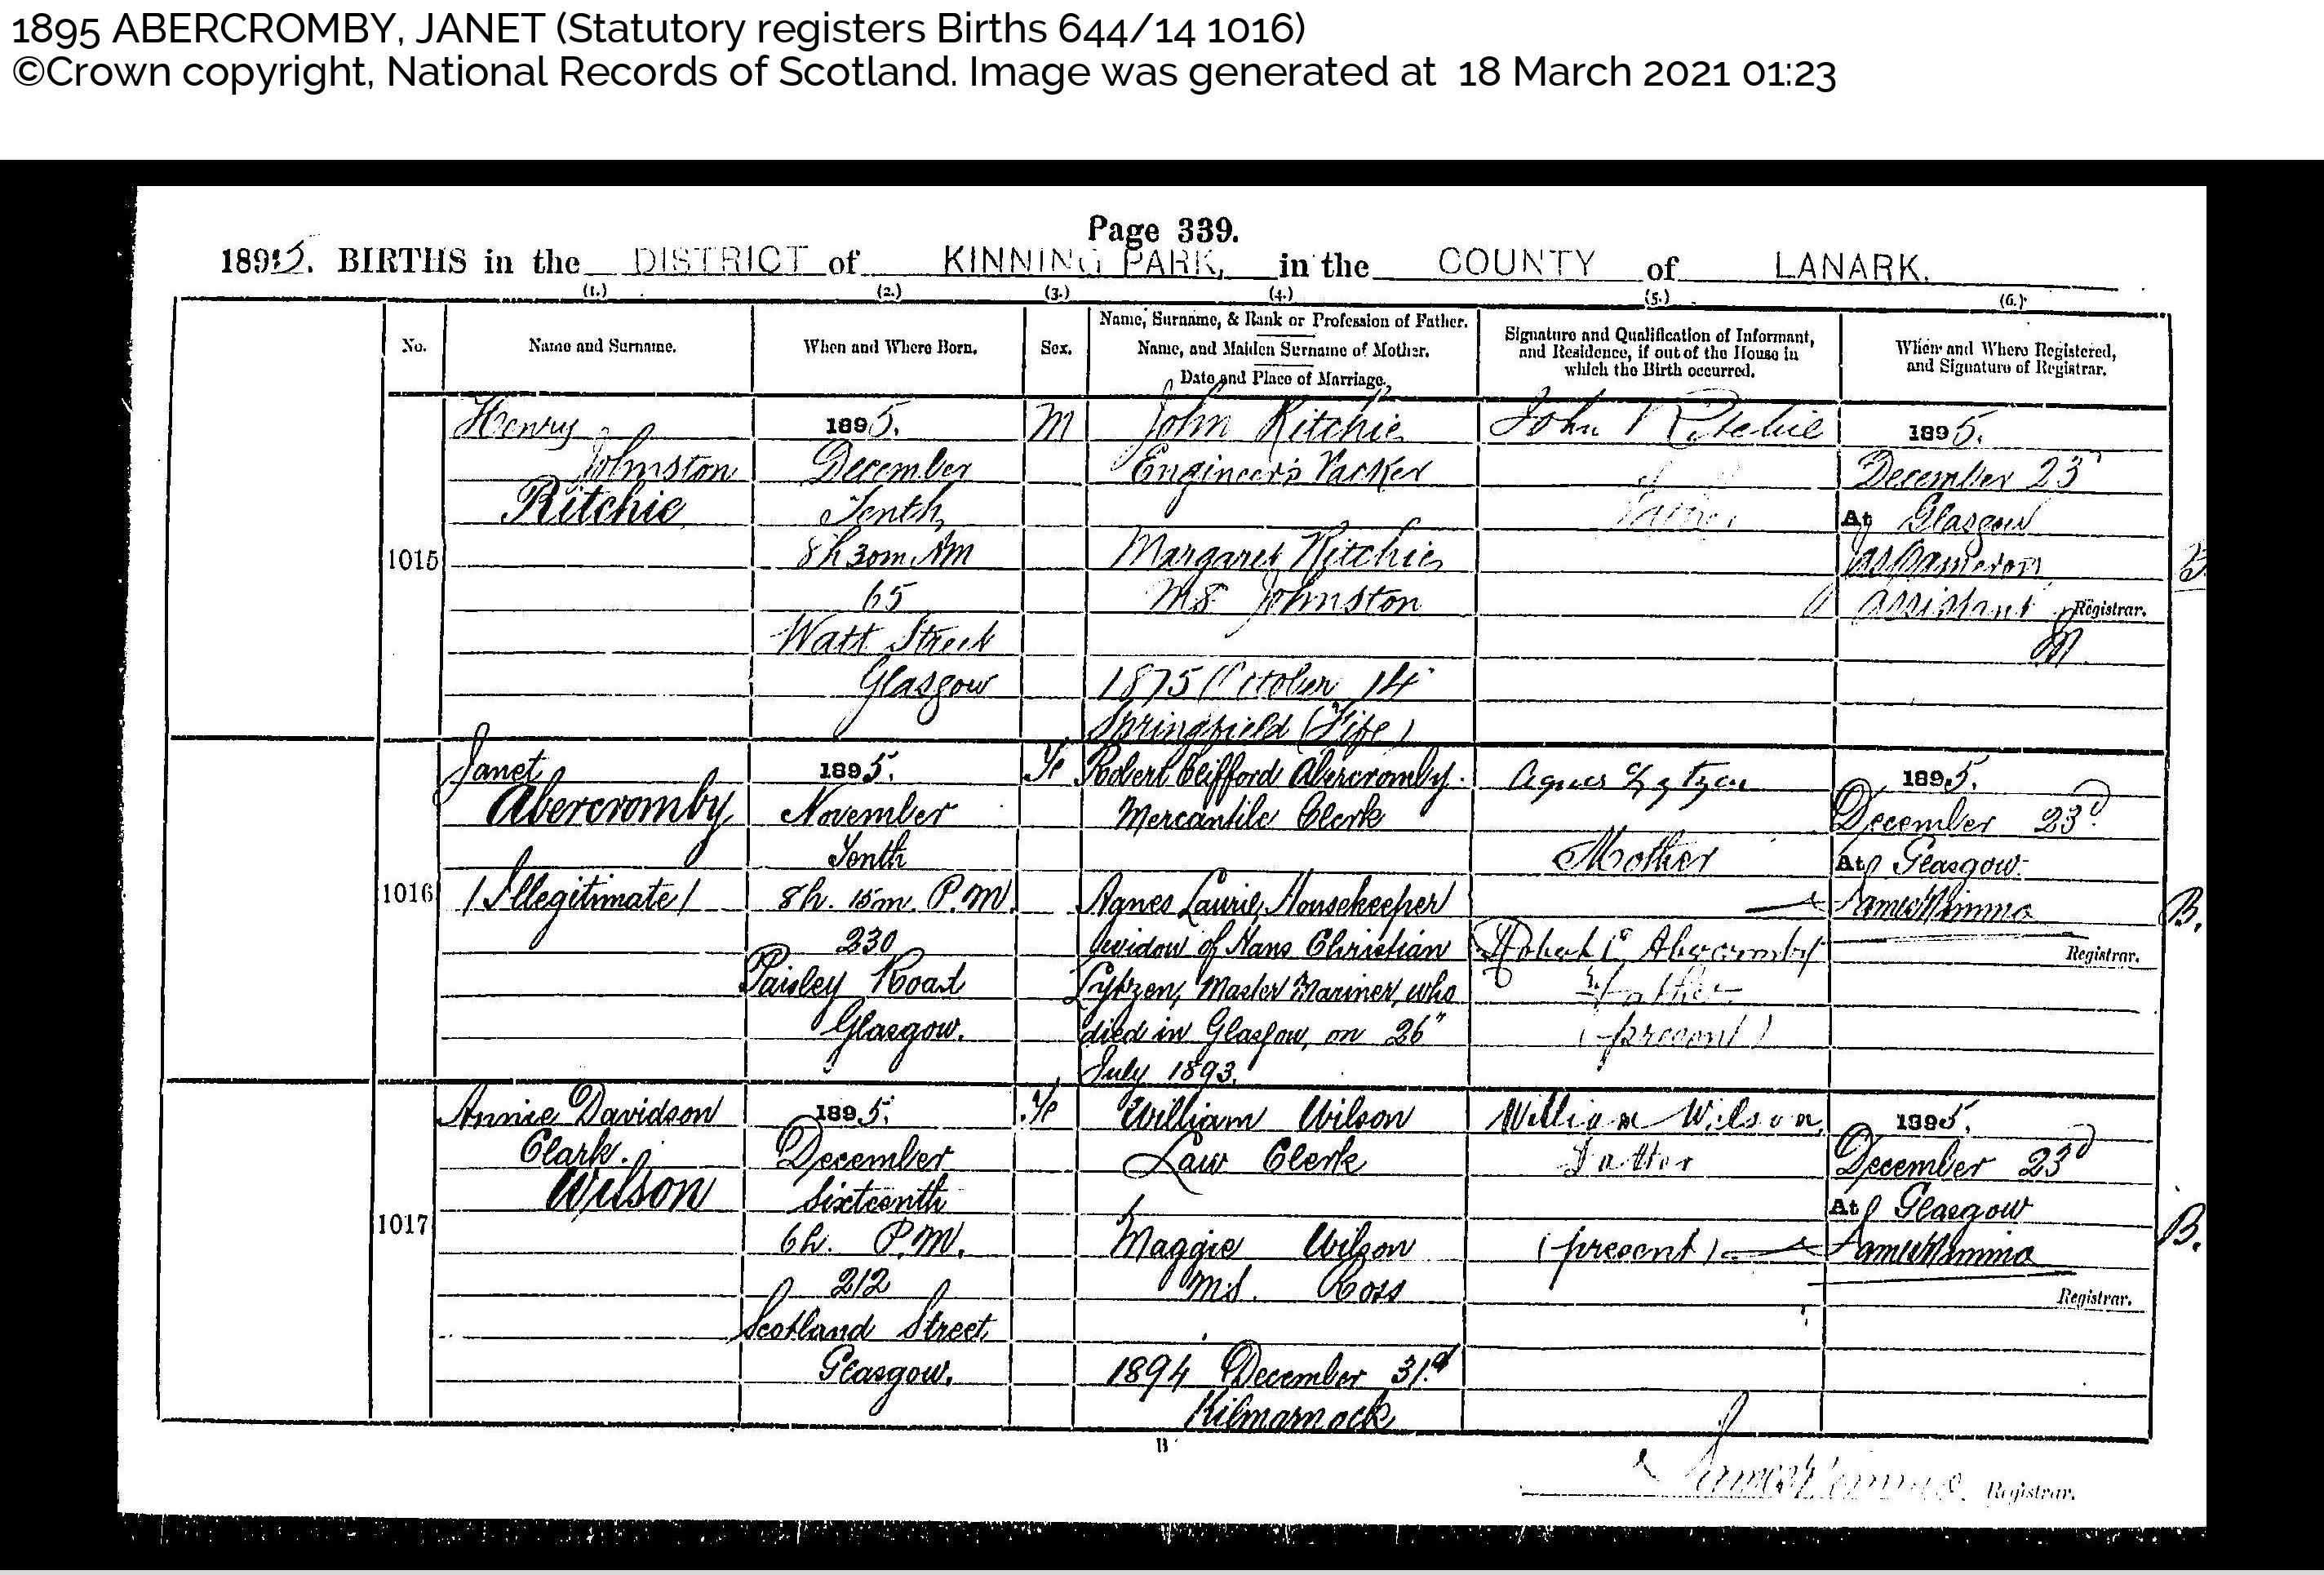 1895 ABERCROMBY, JANET (Statutory registers Births 644/14 1016)
©Crown copyright, National Records of Scotland. Image was generated at 18 March 2021 01:23
Page 339.
1895. BIRTHS in the DISTRICT of KINNING PARK, in the COUNTY of LANARK.
(1.) (2.) (3.) (4.) (5.) (6.)
No.
Name and Surname.
When and Where Born.
Sex.
Name, Surname, & Rank or Profession of Father.
Name, and Maiden Surname of Mother.
Date and Place of Marriage.
Signature and Qualification of Informant,
and Residence, if out of the House in
which the Birth occurred.
When and Where Registered,
and Signature of Registrar.
1015
Henry
Johnston
Ritchie
1895.
December
Tenth
8h 30m AM
65
Watt Street
Glasgow
M
John Ritchie
Engineer's Packer
Margaret Ritchie
MS Johnston
1875 October 14
Springfield (Fife)
John Ritchie
Father
1895.
December 23
At Glasgow
Jas Cameron
Assistant Registrar.
1016
Janet
Abercromby
(Illegitimate)
1895.
November
Tenth
8h. 15m. P.M.
230
Paisley Road
Glasgow.
Fe
Robert Clifford Abercromby.
Mercantile Clerk
Agnes Laurie, Housekeeper
widow of Hans Christian
Lytzen, Master Mariner, who
died in Glasgow, on 26"
July 1893.
Agnes Lytzen
Mother
Robert C. Abercromby
Father
(present)
1895.
December 23d.
At Glasgow.
James Nimmo
Registrar.
B.
1017
Annie Davidson
Clark.
Wilson
1895.
December
Sixteenth
6h. P.M.
212
Scotland Street,
Glasgow.
Fe
William Wilson
Law Clerk
Maggie Wilson
M.S. Ross
1894 December 31st
Kilmarnock
William Wilson,
Father
(present)
1895.
December 23d
At Glasgow
James Nimmo
Registrar.
B.
B
James Nimmo Registrar.